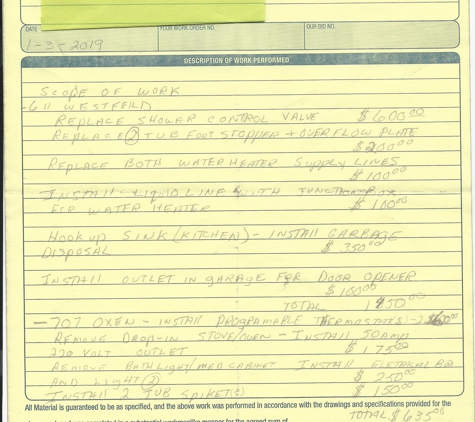 DATE YOUR WORK ORDER NO. OUR BID NO.
1-3-2019
DESCRIPTION OF WORK PERFORMED
SCOPE OF WORK
-611 WESTFEILD
REPLACE SHOWER CONTROL VALVE $600.00
REPLACE 2 TUB FOOT STOPPER + OVERFLOW PLATE
$200.00
REPLACE BOTH WATER HEATER SUPPLY LINES
$100.00
INSTALL LIQUID LINE WITH JUNCTION BOX
FOR WATER HEATER $100
HOOK UP SINK (KITCHEN) - INSTALL GARBAGE
DISPOSAL $350.00
INSTALL OUTLET IN GARAGE FOR DOOR OPENER
$100.00
TOTAL 1450.00
-707 OXEN - INSTALL PROGRAMABLE THERMOSTAT(S)-2
REMOVE DROP-IN STOVE/OVEN - INSTALL 50AMP
220 VOLT OUTLET $175.00
REMOVE BATH LIGHT/MED CABINET INSTALL ELETRICAL BOX
AND LIGHT 2 $250.00
INSTALL 2 TUB SPIKET(S) $150.00
All Material is guaranteed to be as specified, and the above work was performed in accordance with the drawings and specifications provided for the
TOTAL $635.00